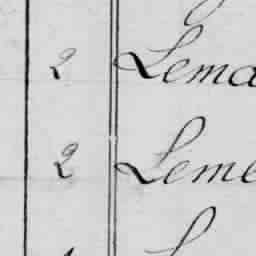 2 Lema
2 Leme